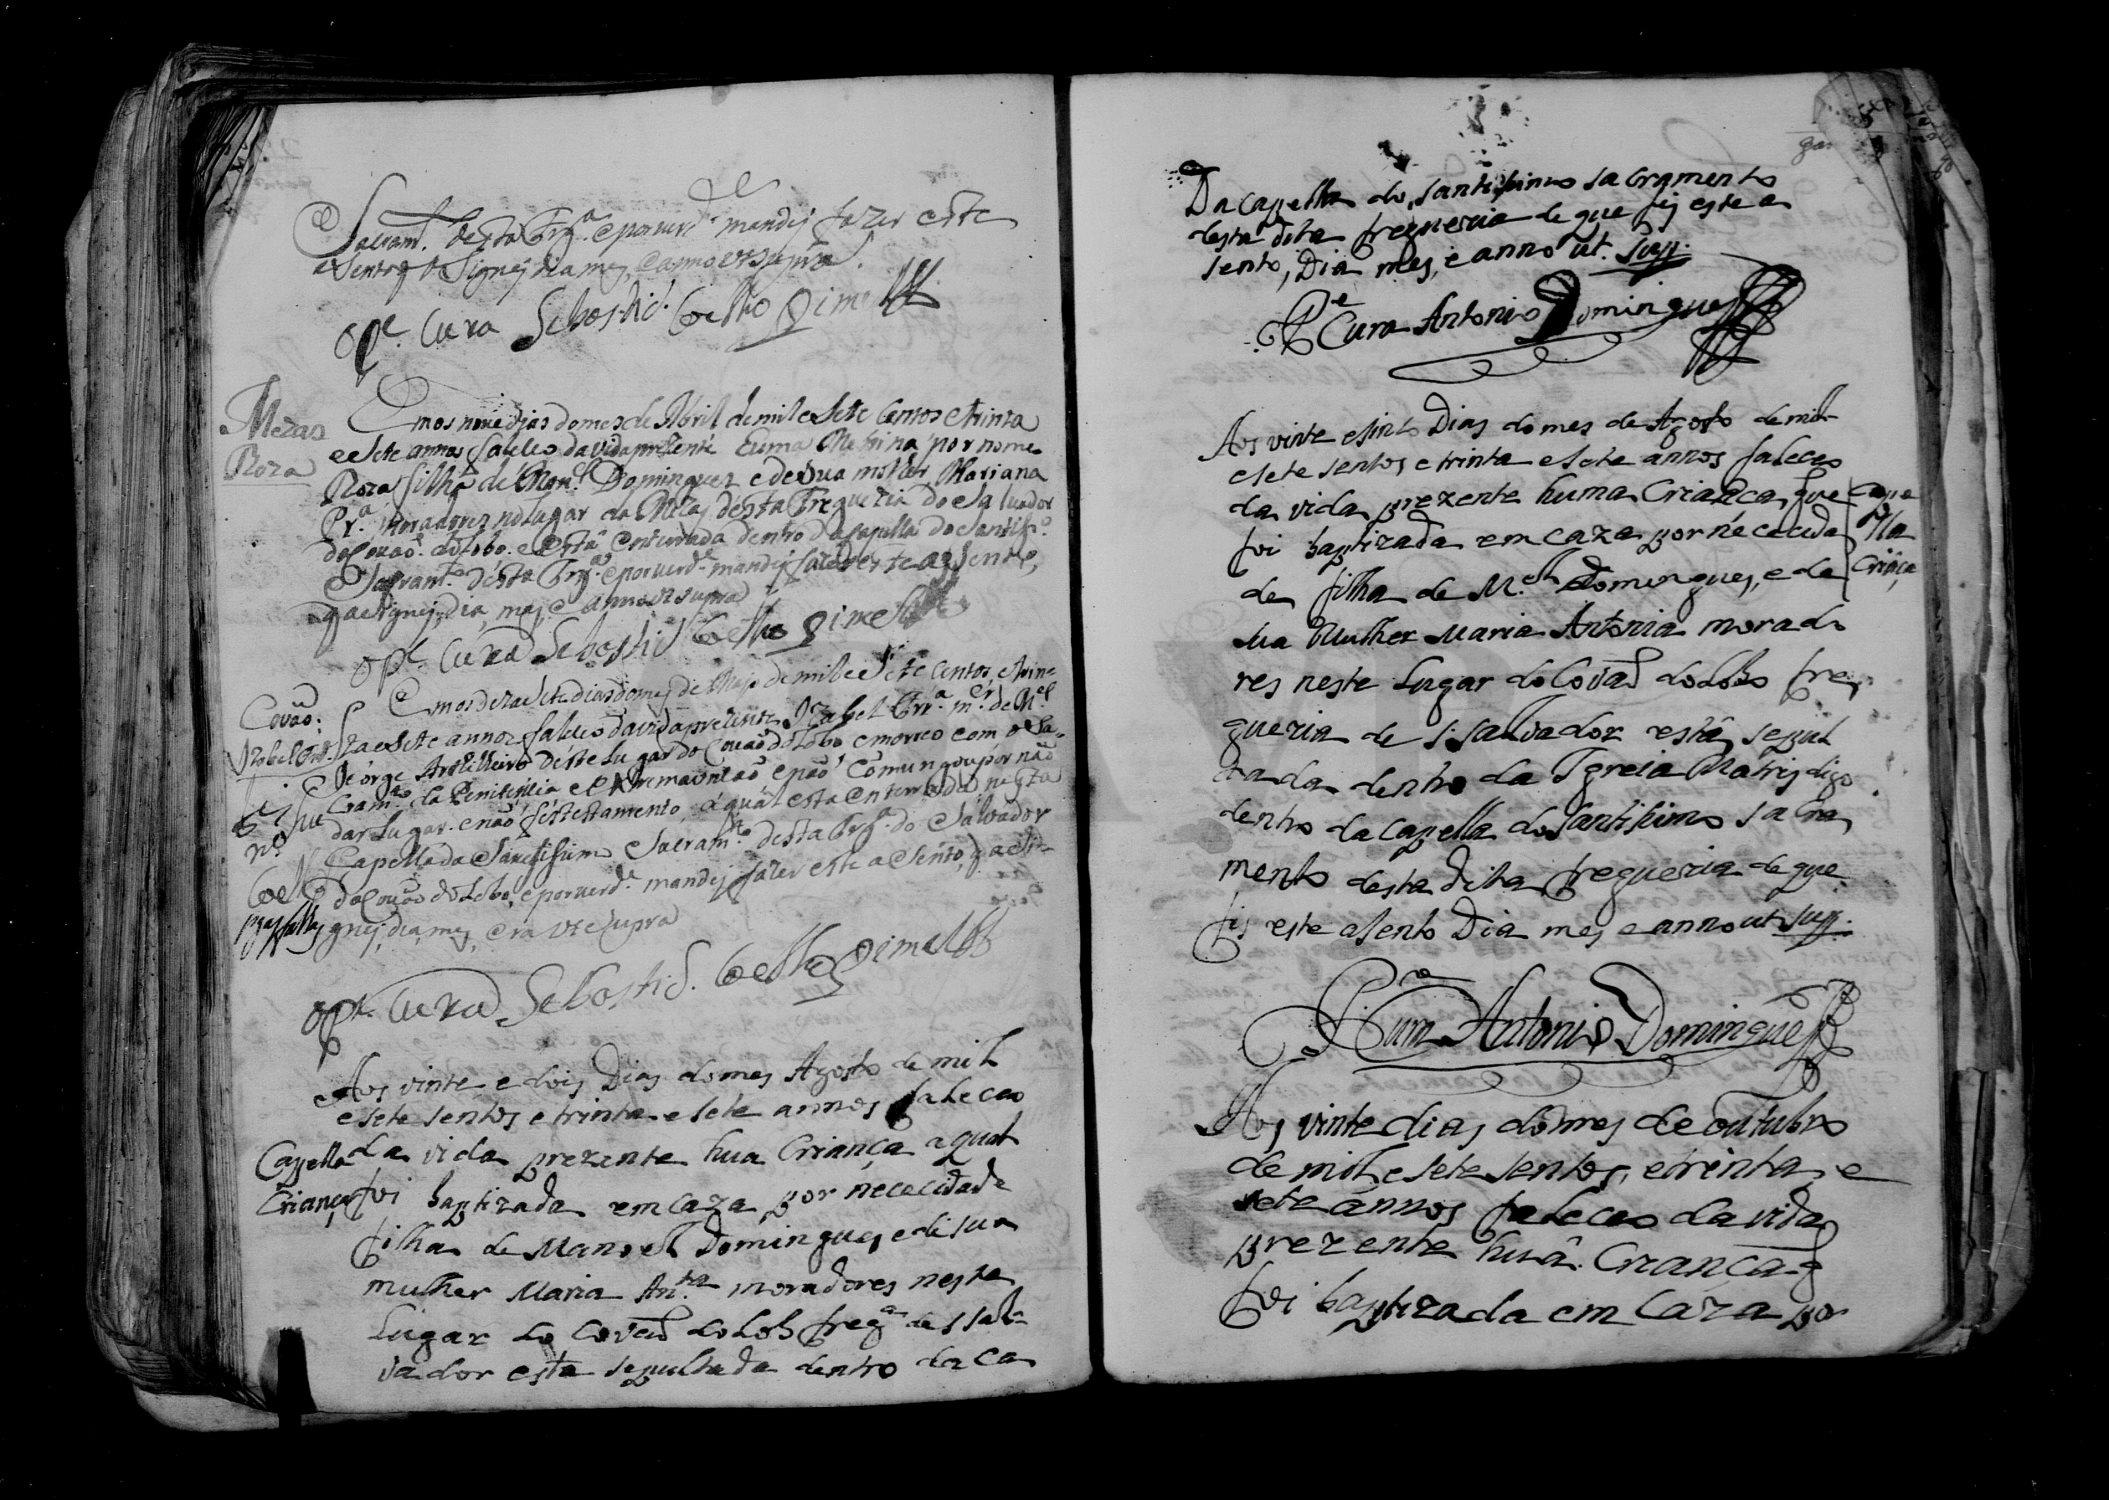 Sacram.to desta Frg.a e por verd.e mandej fazer este
asento q asignej dia mes, e anno ut supra.
o P.e Cura Sebastiã Coelho Pimel
Mezas
Roza
Emos nove djas do mes de Abril de mil e sete centos e trinta
e sete annos faleceo da vida prezente huma Menina por nome
Roza filha de Man.el Domingues e de sua molher Mariana
Pr.a moradores no Lugar da Mezas desta Freguezia do Salvador
do Couaõ do Lobo. e está enterrada dentro da Capella do Santis.o
Sacram.to desta Frg.a e por verd.e mandej fazer este asento,
q asignej, dia, mes, e anno ut supra
o P.e Cura Sebastiã Coelho Pimel
Couão.
Izabel
Emos dezasete dias do mes de Majo de mil e sete centos, e trin-
ta e sete annos faleceo da vida prezente Izabel Frr.a m.er de M.el
Jeorge Artilheiro deste Lugar do Couaõ do Lobo e morreo com o Sa-
cram.to da Penitencia e extremaunçaõ e naõ comungou por naõ
dar Lugar. e naõ fes testamento, a quál está enterrada nesta
Capella do Santissimo Sacram.to desta Frg.a do Salvador
do Couaõ do Lobo, e por verd.e mandej fazer este asento, q asi-
gnej, dia, mes, era ut supra
o P.e Cura Sebastiã Coelho Pimel
Aos vinte e dois Dias do mes Agosto de mil
e sete sentos e trinta e sete annos faleceo
Capella
Criança
da vida prezente hua Criança a qual
foi baptizada em caza por nececidade
filha de Manoel Domingues e de sua
mulher Maria An.ta moradores neste
Lugar do Covaõ do Lob freg.a de s sal-
vador esta sepultada dentro da Ca
Da capella do santissimo sacramento
desta dita fregueria de que fis este a
sento, Dia mes, e anno ut. supp.
P.e Cura Antonio Domingues
Aos vinte e sinto Dias do mes de Agosto de mil
e sete sentos e trinta e sete annos faleceo
da vida prezente huma Criança, que
foi baptizada em caza por nececida
de filha de M.el Domingues, e de
sua Mulher Maria Antonia morado
res neste Lugar do Covaõ do Lobo fre
gueria de s. salvador está sepul
tada dentro da Igreia Matris digo
dentro da capella do santissimo sacra
mento desta dita fregueria de que
fis este asento Dia mes e anno ut supp.
Cape
lla
Criãca
P.e Cura Antonio Domingues
Aos vinte dias do mes de outubro
de mil e sete sentos, e trinta, e
sete annos faleceo da vida
prezente huã Criança q
foi baptizada em caza por